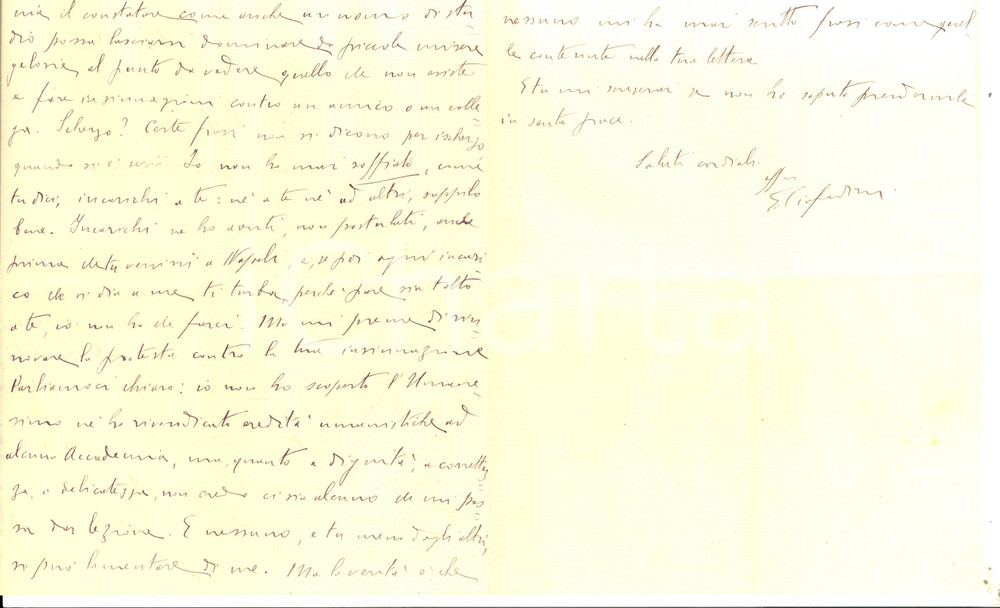 ma il constatare come anche un uomo di stu=
dio possa lasciarsi dominare da piccole misere
gelosie, al punto da vedere quello che non esiste
e fare insinuazioni contro un amico o un colle=
ga. Scherzo? Certe frasi non si dicono per ischerzo
quando si è serii. Io non ho mai soffiato, come
tu dici, incarichi a te: nè a te nè ad altri, sappilo
bene. Incarichi ne ho avuti, non postulati, anche
prima che tu venissi a Napoli, e, se poi ogni incari=
co che si dia a me ti turba, perchè pare sia tolto
a te, io non ho che farci. Ma mi preme di rin=
novare la protesta contro la tua insinuazione
Parliamoci chiaro: io non ho scoperto l'Umane=
simo nè ho rivendicato eredità umanistiche ad
alcuna Accademia, ma, quanto a dignità, a correttez=
za, a delicatezza, non credo ci sia alcuno che mi pos=
sa dar lezione. E nessuno, e tu meno degli altri,
si può lamentare di me. Ma la verità è che
nessuno mi ha mai scritto frasi come quel=
le contenute nella tua lettera.
E tu mi scuserai se non ho saputo prendermele
in santa pace.
Saluti cordiali.
Charta